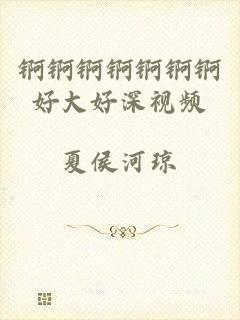 锕锕锕锕锕锕锕
好大好深视频
夏侯河琼